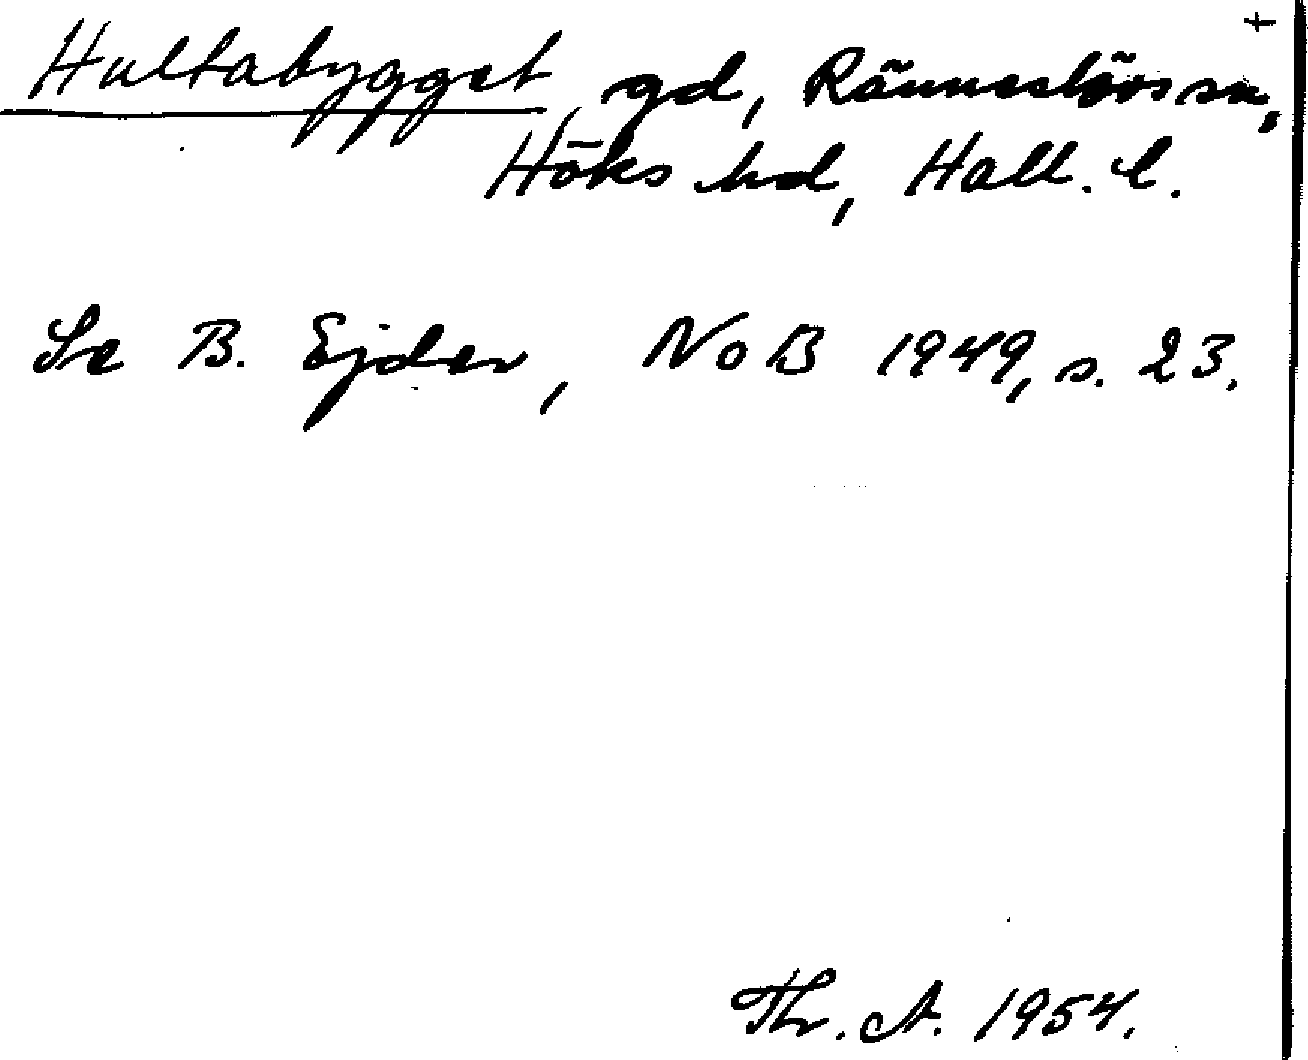 +
Hultabygget, gd, Ränneslövs sn,
Höks hd, Hall. l.
Se B. Ejder, NoB 1949, s. 23.
Th. A. 1954.